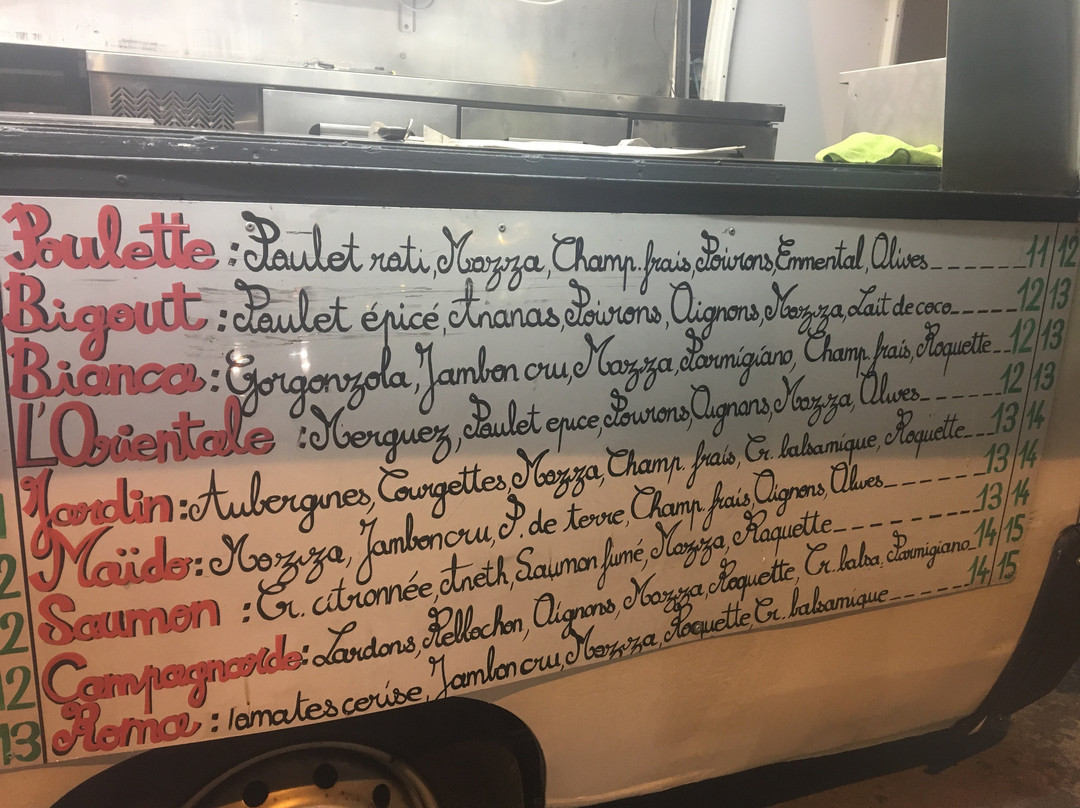 Poulette : Poulet roti, Mozza, Champ. frais, Poivrons, Emmental, Olives 11 12
Bigout : Poulet épicé, Ananas, Poivrons, Oignons, Mozza, Lait de coco 12 13
Bianca : Gorgonzola, Jambon cru, Mozza, Parmigiano, Champ. frais, Roquette 12 13
L'Orientale : Merguez, Poulet epice, Poivrons, Oignons, Mozza, Olives 12 13
Jardin : Aubergines, Courgettes, Mozza, Champ. frais, Cr. balsamique, Roquette 13 14
Maïdo : Mozza, Jambon cru, P. de terre, Champ. frais, Oignons, Olives 13 14
Saumon : Cr. citronnée Aneth, Saumon fumé, Mozza, Roquette 13 14
12 Campagnarde : Lardons, Reblochon, Oignons, Mozza, Roquette, Cr. balsa, Parmigiano 14 15
13 Roma : Tomates cerise, Jambon cru, Mozza, Roquette, Cr. balsamique 14 15